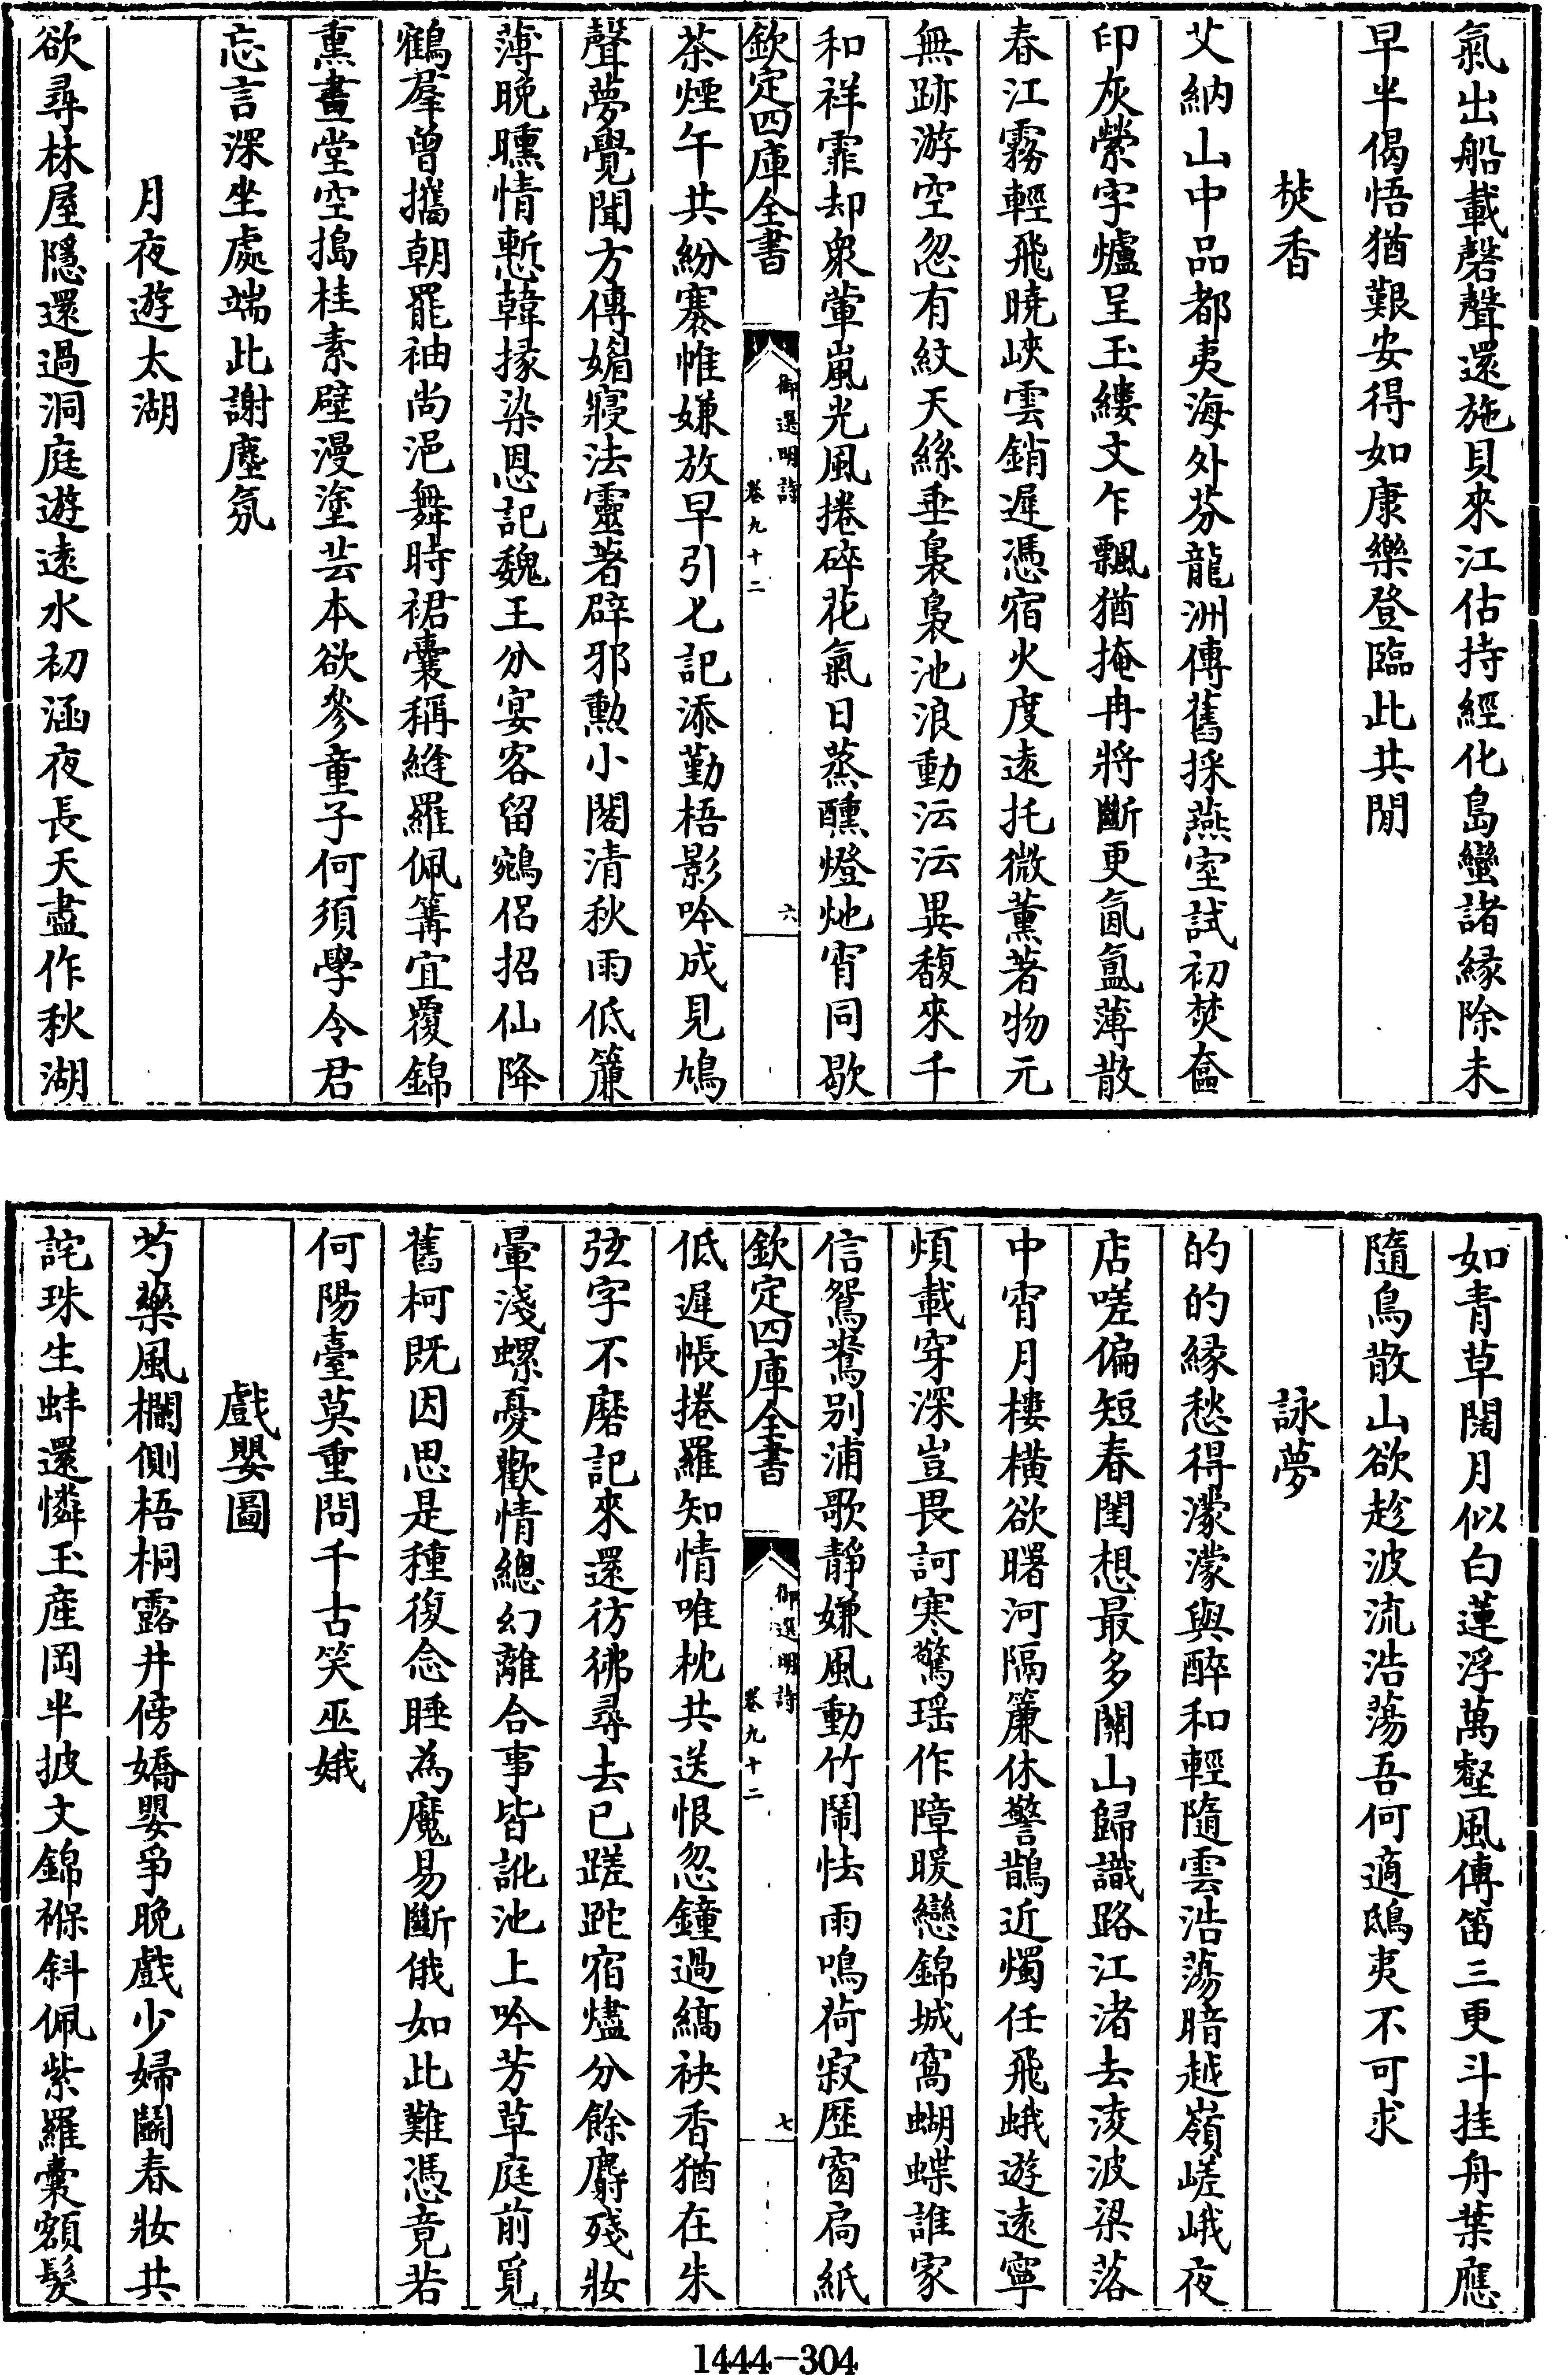 氣出船載磬聲還施貝來江估持經化島蠻諸緣除未
早半偈悟猶艱安得如康樂登臨此共閒
焚香
艾納山中品都夷海外芬龍洲傳舊採燕室試初焚奩
印灰縈字爐呈玉縷文乍飄猶掩冉將斷更氤氳薄散
春江霧輕飛曉峽雲銷遲憑宿火度遠托微薰著物元
無跡游空忽有紋天絲垂裊裊池浪動沄沄異馥來千
和祥霏却衆葷嵐光風捲碎花氣日蒸醺燈灺宵同歇
欽定四庫全書
御選明詩
卷九十二
六
茶煙午共紛褰帷嫌放早引匕記添勤梧影吟成見鳩
聲夢覺聞方傳媚寢法靈著辟邪勳小閣清秋雨低簾
薄晚曛情慙韓掾染恩記魏王分宴客留鵷侶招仙降
鶴羣曾攜朝罷袖尚浥舞時裙囊稱縫羅佩篝宜覆錦
熏畫堂空搗桂素壁漫塗芸本欲參童子何須學令君
忘言深坐處端此謝塵氛
月夜遊太湖
欲尋林屋隱還過洞庭遊遠水初涵夜長天盡作秋湖
如青草闊月似白蓮浮萬壑風傳笛三更斗挂舟葉應
隨鳥散山欲趁波流浩蕩吾何適鴟夷不可求
詠夢
的的緣愁得濛濛與醉和輕隨雲浩蕩暗越嶺嵯峨夜
店嗟偏短春閨想最多關山歸識路江渚去淩波梁落
中宵月樓橫欲曙河隔簾休警鵲近燭任飛蛾遊遠寧
煩載穿深豈畏訶寒驚瑶作障暖戀錦城窩蝴蝶誰家
信鴛鴦別浦歌靜嫌風動竹鬧怯雨鳴荷寂歷窗扄紙
欽定四庫全書
御選明詩
卷九十二
七
低遲帳捲羅知情唯枕共送恨忽鐘過縞袂香猶在朱
弦字不磨記來還彷彿尋去已蹉跎宿燼分餘麝殘妝
暈淺螺憂歡情總幻離合事皆訛池上吟芳草庭前覓
舊柯既因思是種復念睡為魔易斷俄如此難憑竟若
何陽臺莫重問千古笑巫娥
戲嬰圖
芍藥風欄側梧桐露井傍嬌嬰爭晚戲少婦鬭春妝共
詫珠生蚌還憐玉産岡半披文錦褓斜佩紫羅囊額髮
1444-304